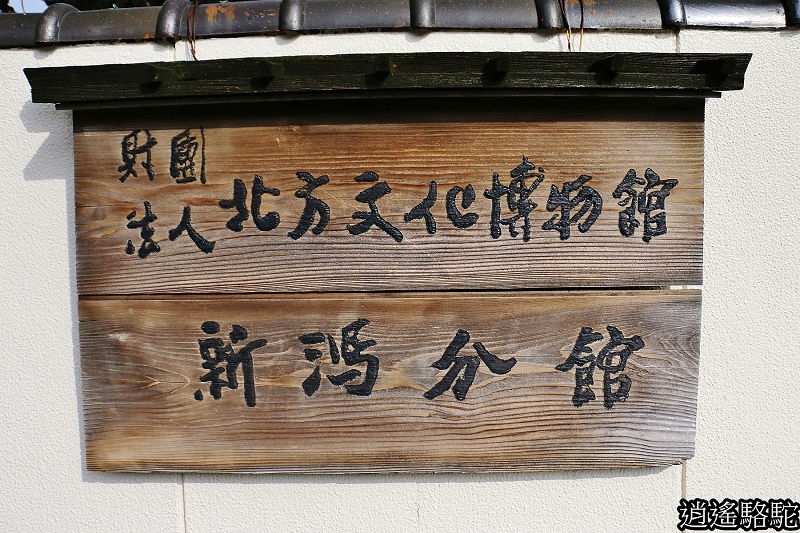 財團
法人北方文化博物館
新潟分館
逍遙駱駝